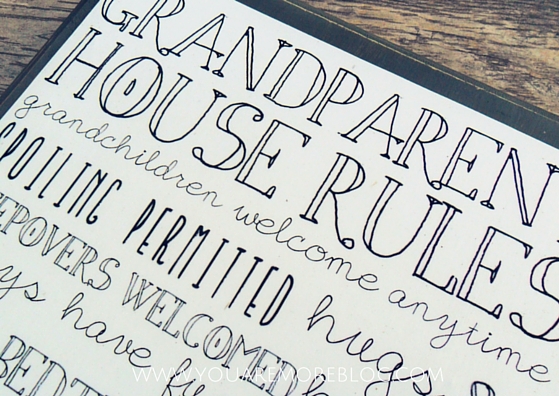 GRANDPAREN
HOUSE RULES
grandchildren welcome anytime
SPOILING PERMITTED hugs
EPOVERS WELCOMED
ys have
BEDT
WWW.YOUAREMOREBLOG.COM